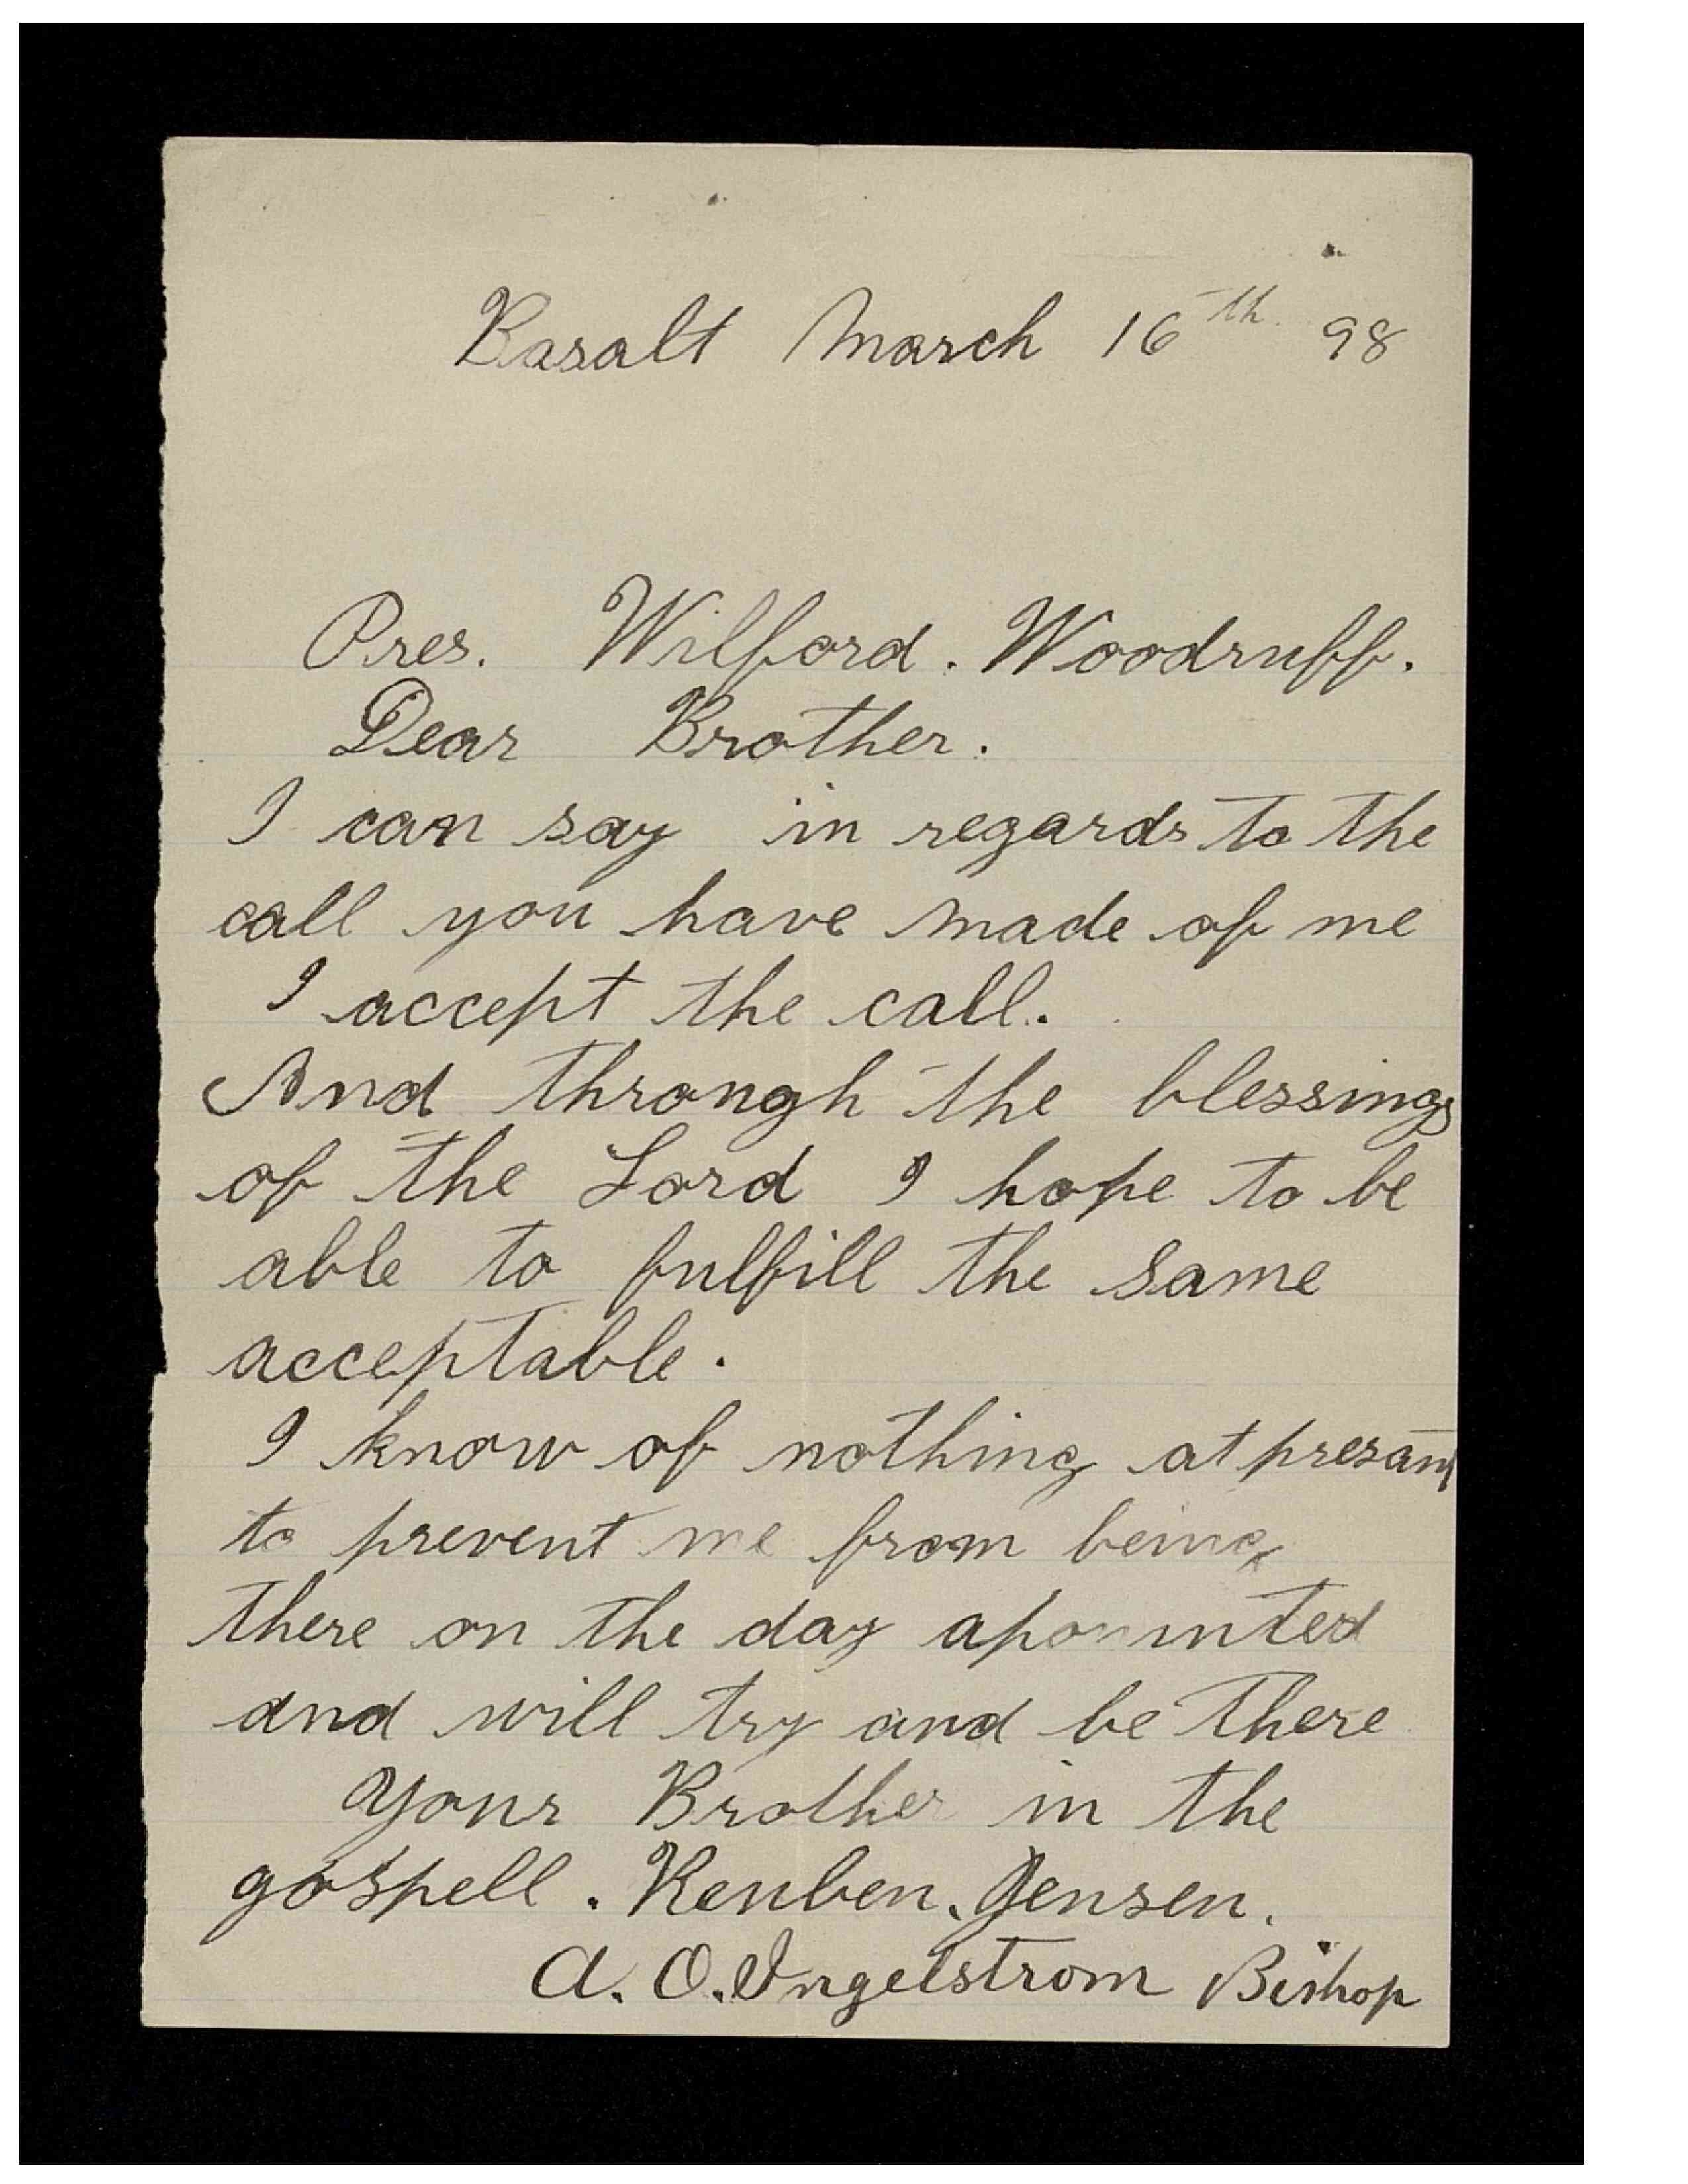 Basalt March 16th 98
Pres. Wilford. Woodruff.
Dear Brother.
I can say in regards to the
call you have made of me
I accept the call.
And through the blessings
of the Lord I hope to be
able to fulfill the same
acceptable.
I know of nothing at presant
to prevent me from being
there on the day apointed
and will try and be there
Your Brother in the
gospell. Reuben. Jensen.
A. O. Ingelstrom Bishop